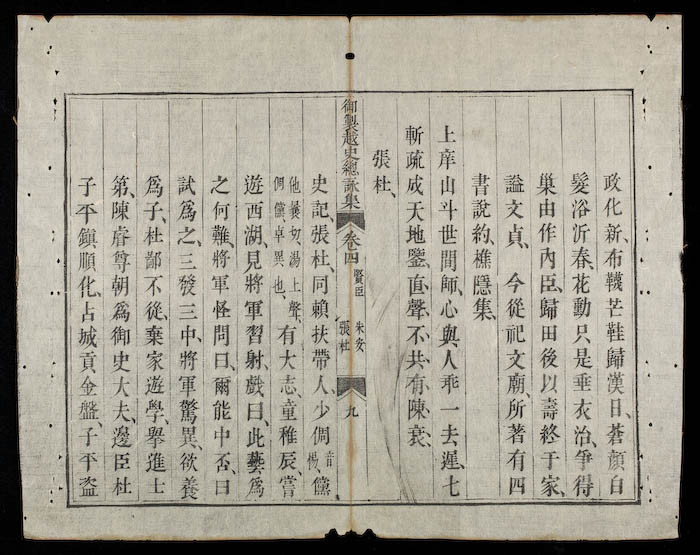 政化新、布韈芒鞋歸漢日、蒼顏白
髮浴沂春、花動只是垂衣治、爭得
巢由作內臣、歸田後以壽終于家、
謚文貞、今從祀文廟、所著有四
書說約、樵隱集、
上庠山斗世間師、心與人乖一去遲、七
斬疏成天地鑒、直聲不共有陳衰、
張杜、
御製越史總詠集 卷四 賢臣 朱安 張杜 九
史記、張杜、同賴扶帶人、少倜音惕、儻
他曩切、湯上聲、倜儻、卓異也、有大志、童稚辰、嘗
遊西湖、見將軍習射、戲曰、此藝爲
之何難、將軍怪問曰、爾能中否、曰
試爲之、三發三中、將軍驚異、欲養
爲子、杜鄙不從、棄家遊學、舉進士
第、陳睿尊朝爲御史大夫、邊臣杜
子平鎮順化、占城貢金盤、子平盜